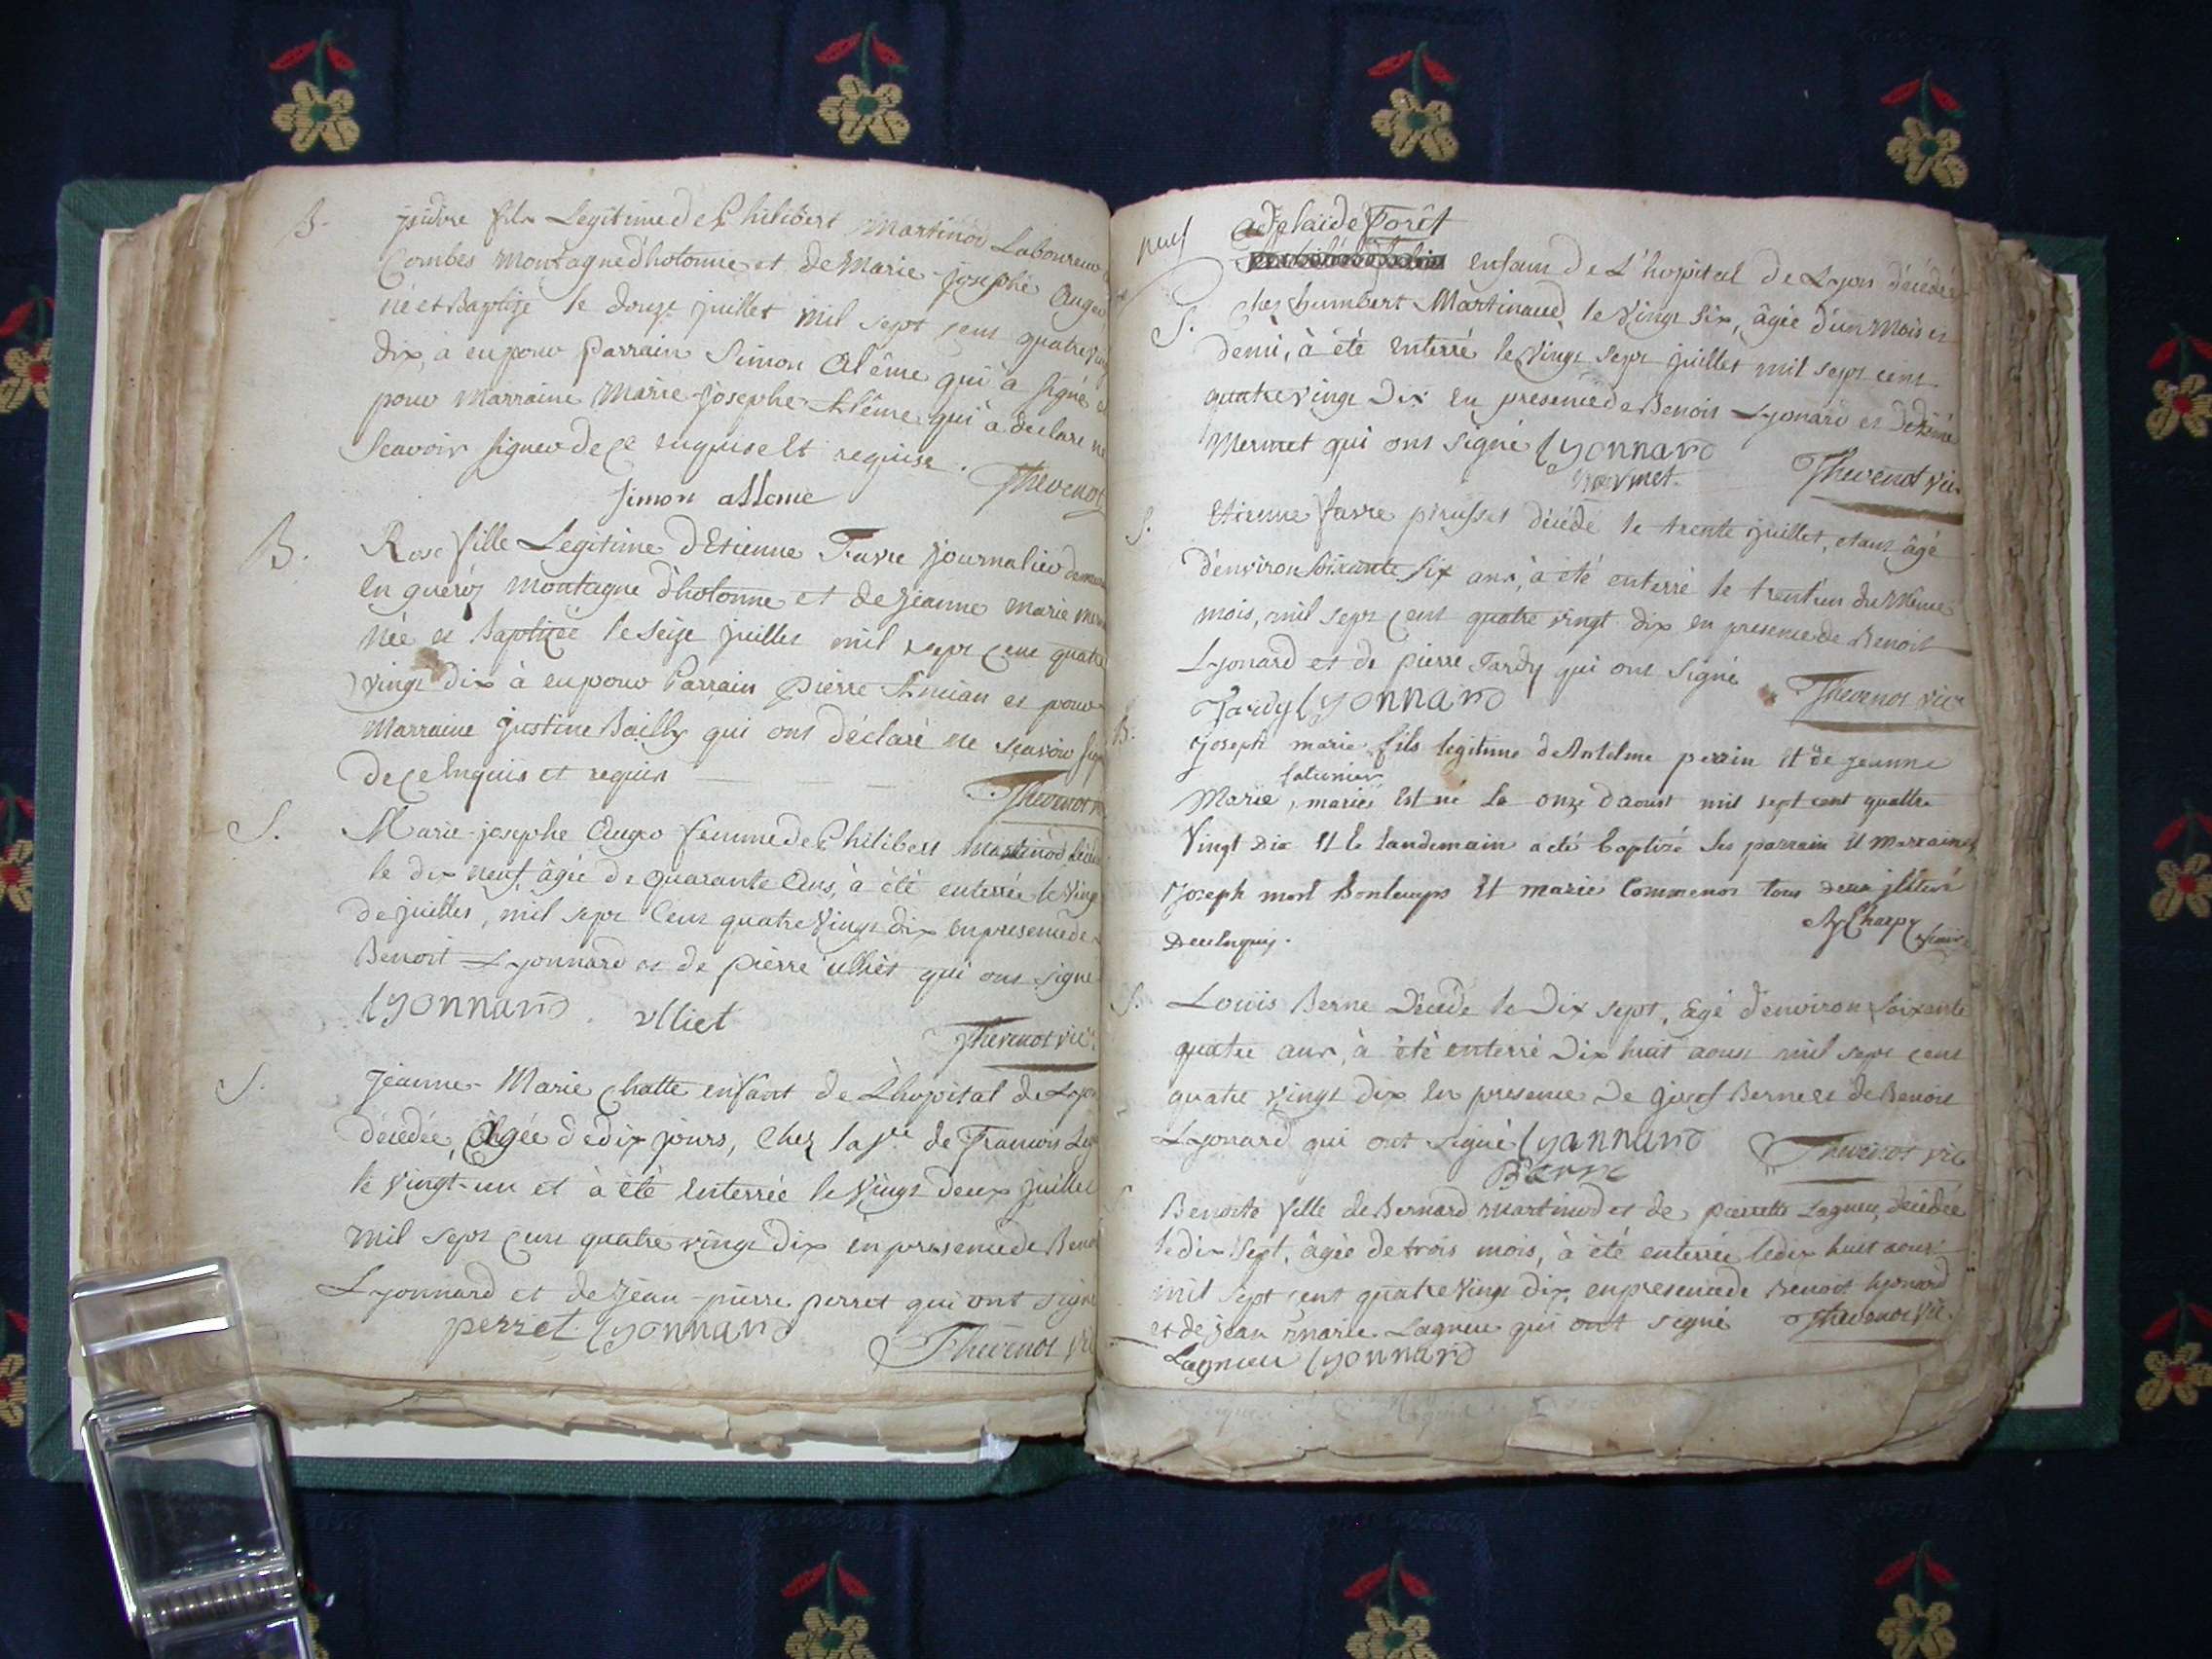 B.
isidore fils Legitime de Philibert Martinod Laboureur
Combes montagne d'hotonne et de Marie-josephe
né et Baptize le douze juillet mil sept cens quatre vingt
dix, a eu pour Parrain Simon Alême qui a signé et
pour Marraine Marie-josephe Alême qui a declaré ne
Scavoir signer de ce enquise et requise. Thevenot
Simon alleme
B.
Rose fille Legitime d'Etienne Favre journalier
en montagne d'hotonne et de jeanne marie
née et Baptizée le seize juillet mil sept cent quatre
vingt dix à eu pour Parrain pierre et pour
Marraine justine Bailly qui ont déclaré ne sçavoir
de ce enquis et requis
Thevenot
S.
Marie-josephe femme de Philibert Martinod
le dix neuf, âgée de quarante Ans, à été enterrée le vingt
de juillet, mil sept Cent quatre vingt dix en presence de
Benoit Lyonnard et de pierre ulliet qui ont signé
Lyonnard. ulliet
Thevenot vic.
S.
Jeanne-Marie Chatte enfant de L'hopital de Lyon
décédée, Agée de dix jours, chez la de Francois
le vingt-un et à été enterrée le vingt deux juillet
mil sept cens quatre vingt dix en presence de Benoit
Lyonnard et de jean-pierre perret qui ont signé
perret Lyonnard
Thevenot vic
adelaïde Forêt
enfant de L'hopital de Lyon décédée
S.
chez humbert Martinaud, le vingt six, âgée d'un mois et
demi, à été enterré le vingt sept juillet mil sept cent
quatre vingt Dix en presence de Benoit Lyonard et
Mermet qui ont signé Lyonnard
mermet.
Thevenot vic.
S.
Etienne favre décédé le trente juillet, etant âgé
d'environ soixante six ans, à été enterré le trent'un du même
mois, mil sept cent quatre vingt dix en presence de Benoit
Lyonard et de pierre Tardy qui ont signé
Tardy Lyonnard
Thevenot vic
B.
Joseph marie fils legitime de Antelme perrin et de jeanne
Marie, mariés Est né Le onze d'aoust mil sept cent quattre
Vingt Dix Et le landemain a été Baptizé Ses parrain et marraine
Joseph mort Bontemps Et marie Commenos tous deux
De ce enquis.
Louïs Berne Décédé le Dix sept, âgé d'environ soixante
quatre ans, à été enterré Dix huit aout mil sept cent
quatre vingt dix en presence De Berne et de Benoit
Lyonard qui ont signé Lyonnard
Berne
Thevenot vic
Benoite fille de Bernard Martinod et de pierrette Lagneu, décédée
le dix sept, âgée de trois mois, à été enterrée le dix huit aout
mil sept cent quatre vingt dix, en presence de Benoit Lyonard
et de jean marie Lagneu qui ont signé Thevenot vic.
Lagnieu Lyonnard